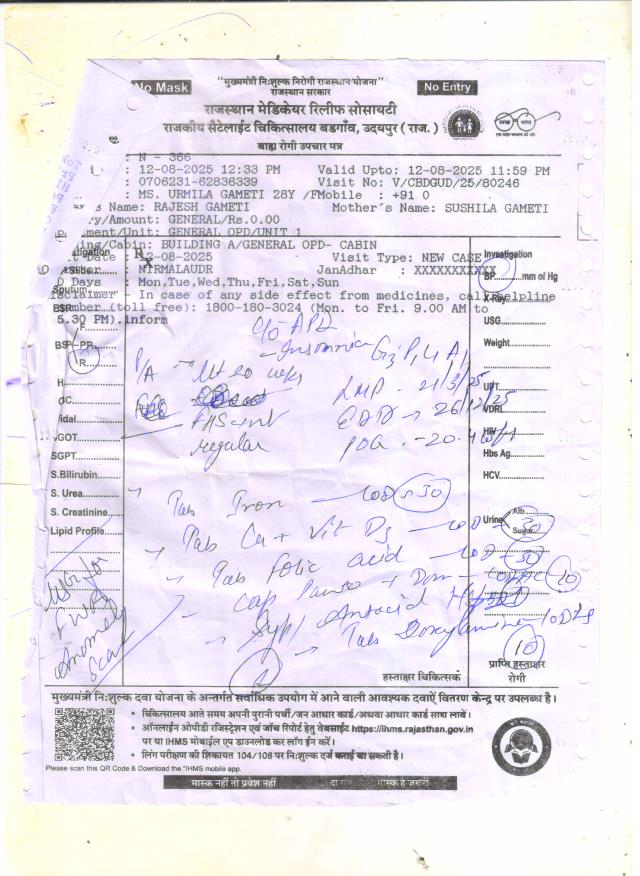 No Mask
"मुख्यमंत्री निःशुल्क निरोगी राजस्थान योजना"
राजस्थान सरकार
No Entry
राजस्थान मेडिकेयर रिलीफ सोसायटी
राजकीय सैटेलाईट चिकित्सालय बडगाँव, उदयपुर ( राज. )
बाह्य रोगी उपचार पत्र
: N - 366
: 12-08-2025 12:33 PM Valid Upto: 12-08-2025 11:59 PM
: 0706231-62836339 Visit No: V/CBDGUD/25/80246
: MS. URMILA GAMETI 28Y /F Mobile : +91 0
Name: RAJESH GAMETI Mother's Name: SUSHILA GAMETI
ry/Amount: GENERAL/Rs.0.00
ment/Unit: GENERAL OPD/UNIT 1
ing/Cabin: BUILDING A/GENERAL OPD- CABIN
Date : 12-08-2025 Visit Type: NEW CASE
: NIRMALAUDR JanAadhar : XXXXXXXXXXX
Days : Mon,Tue,Wed,Thu,Fri,Sat,Sun
sclaimer - In case of any side effect from medicines, call helpline
number (toll free): 1800-180-3024 (Mon. to Fri. 9.00 AM to
5.30 PM).inform
Investigation
BP mm of Hg
X-Ray
USG
Weight
UPT
VDRL
HIV
Hbs Ag
HCV
Urine Alb.
Sugar
Sputum
BSF - F
BSP - PP
R
H
DC
idal
GOT
SGPT
S.Bilirubin
S. Urea
S. Creatinine
Lipid Profile
- Insomnia G3 P1 L1 A1
P/A - Ut 20 wks
LMP - 21/3/25
FHS +nt
EDD → 26/12/25
regular
POG - 20.4 wks
Tab Iron - 1OD x 30
Tab Ca + Vit D3 - 1OD 30
Tab folic acid - 1OD 30
Cap Panto + Dom - 10
Syp Antacid
Tab Doxylamine - 1OD HS
10
Anomaly
Scan
हस्ताक्षर चिकित्सक
प्राप्ति हस्ताक्षर
रोगी
मुख्यमंत्री निःशुल्क दवा योजना के अन्तर्गत सर्वाधिक उपयोग में आने वाली आवश्यक दवाऐं वितरण केन्द्र पर उपलब्ध है।
• चिकित्सालय आते समय अपनी पुरानी पर्ची/जन आधार कार्ड/अथवा आधार कार्ड साथ लावें।
• ऑनलाईन ओपीडी रजिस्ट्रेशन एवं जॉच रिपोर्ट हेतु वेबसाईट https://ihms.rajasthan.gov.in
पर या IHMS मोबाईल एप डाउनलोड कर लॉग ईन करें।
• लिंग परीक्षण की शिकायत 104/108 पर निःशुल्क दर्ज कराई जा सकती है।
Please scan this QR Code & Download the "IHMS mobile app.
मास्क नहीं तो प्रवेश नहीं